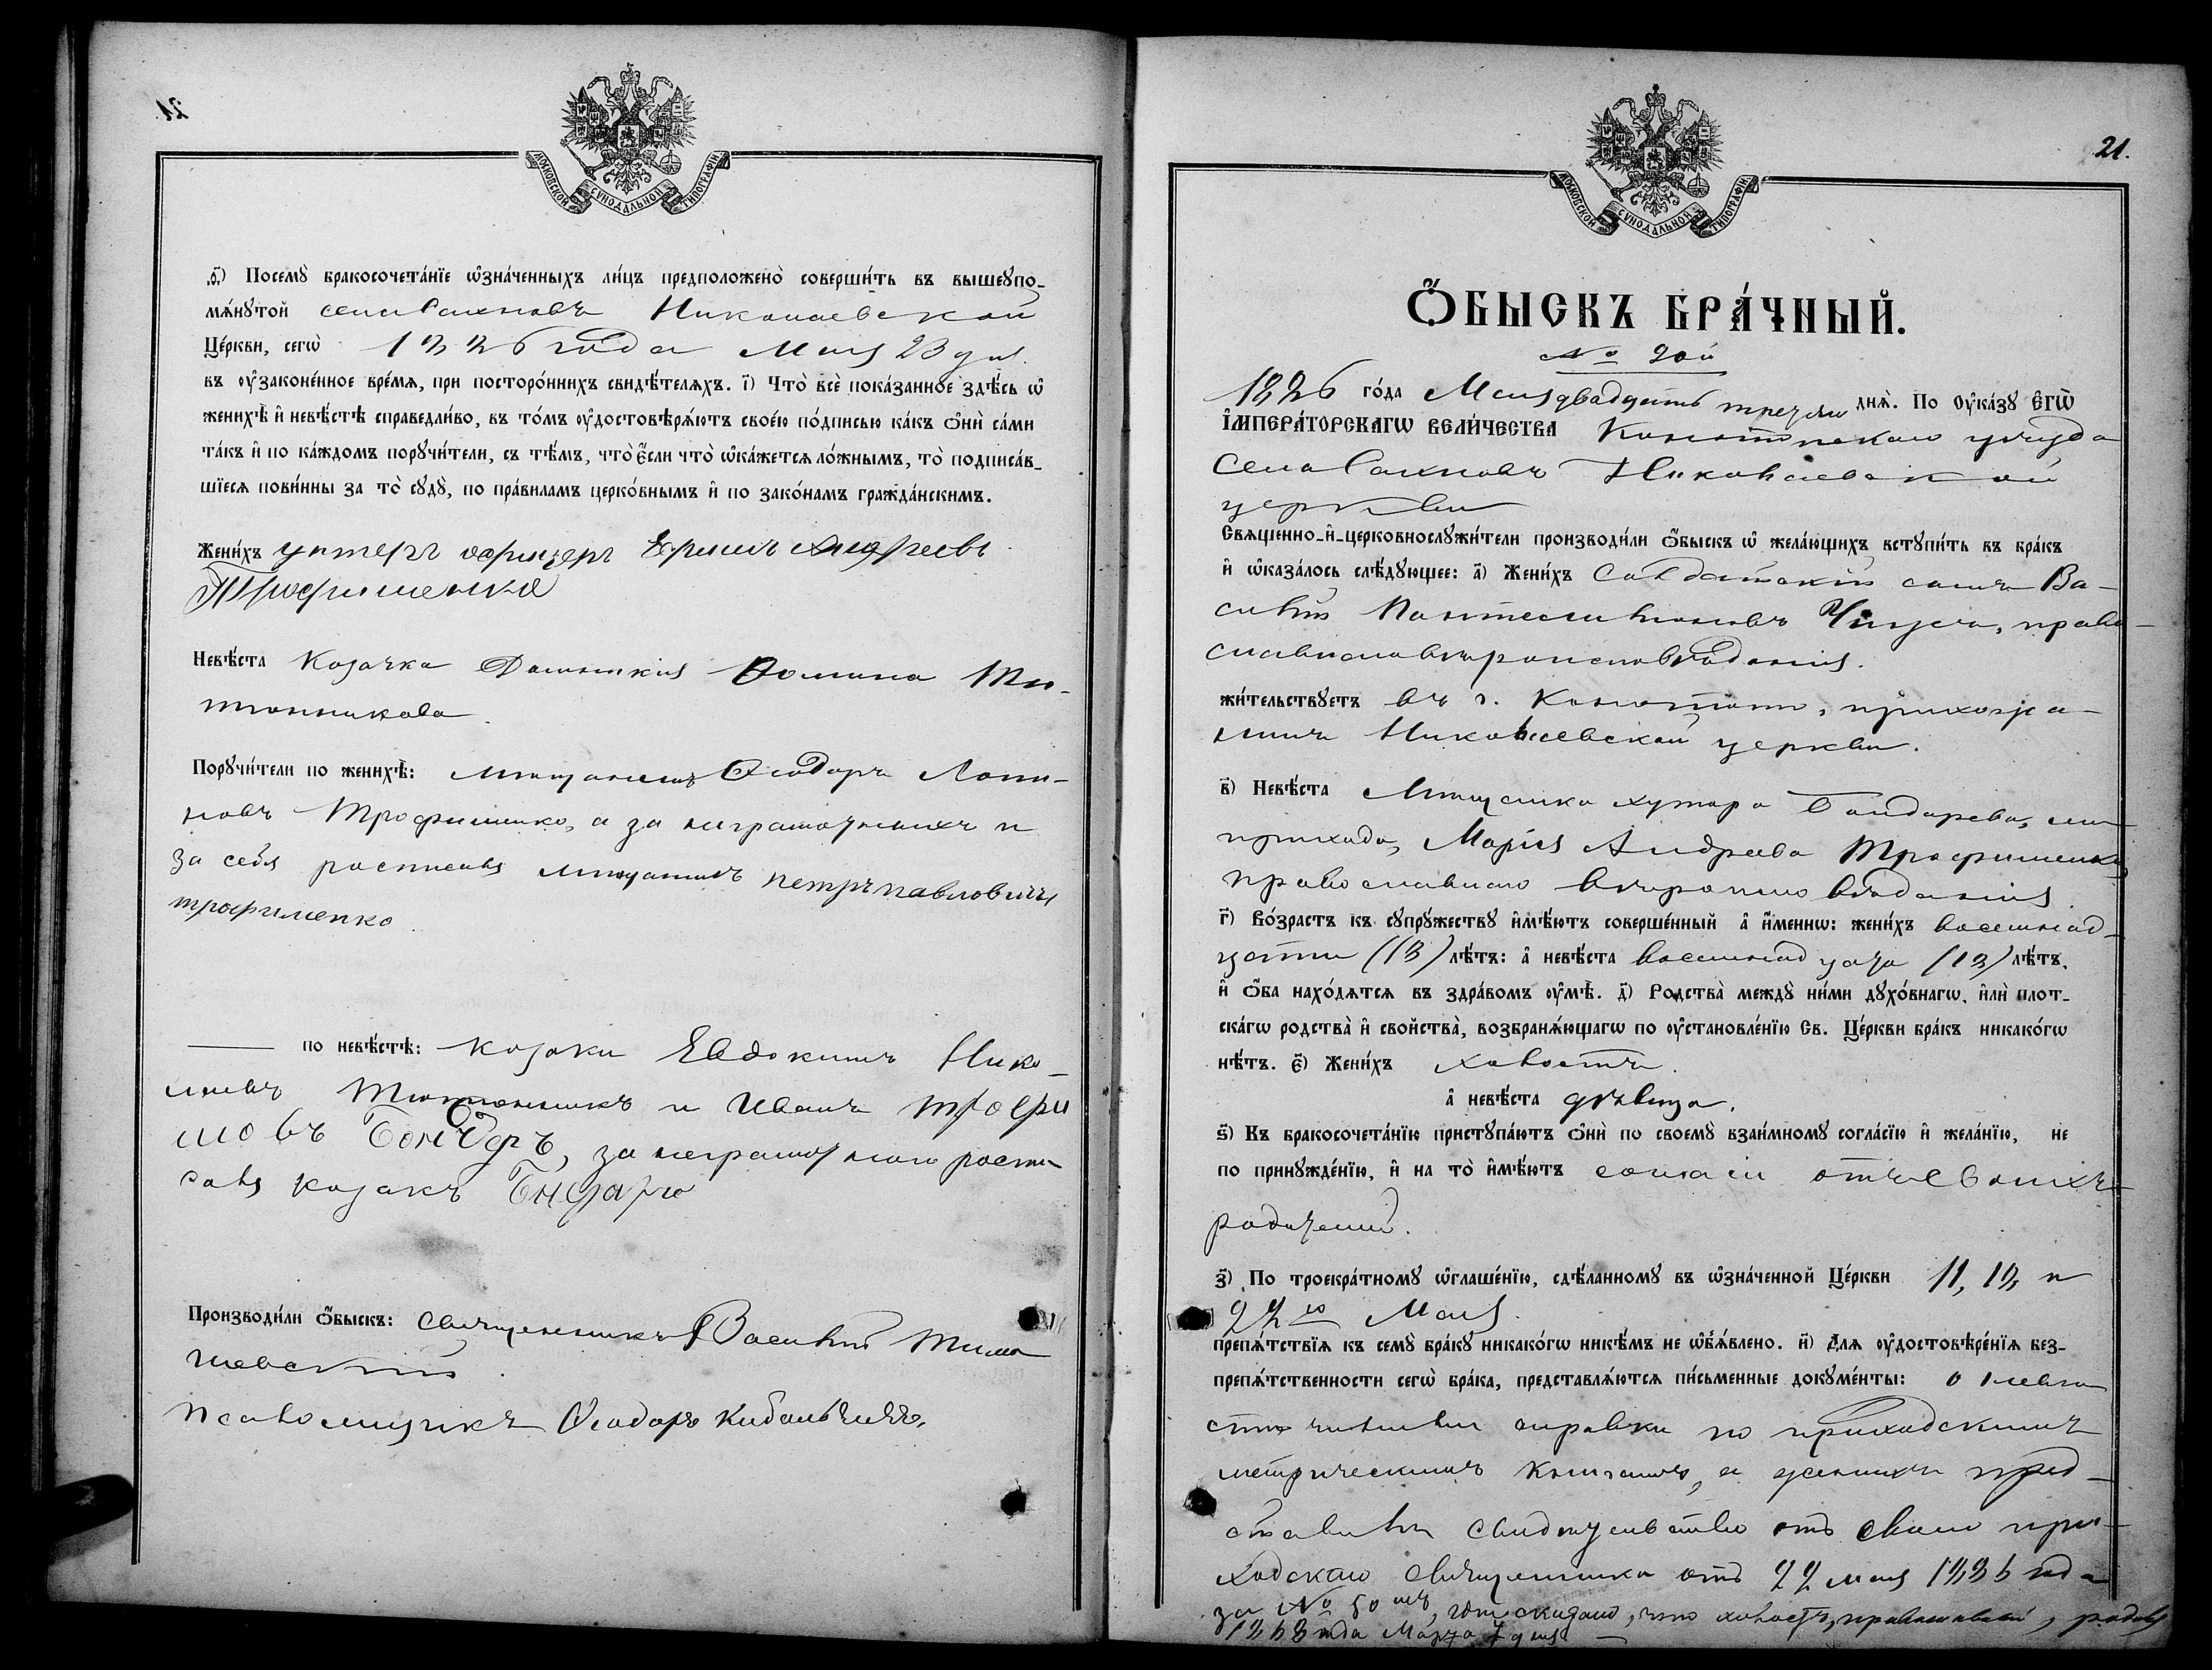 21.
МОСКОВСКОЙ СѴНОДАЛЬНОЙ ТИПОГРАФІИ
ѳ҃) Посемꙋ̀ бракосочета́нїе ѡ҆зна́ченныхъ ли́цъ предположено̀ соверши́ть въ вышеꙋпо-
мѧ́нꙋтой села Сахновъ Николаевской
Це́ркви, сегѡ̀ 1886 года Мая 23 дня.
въ ᲂу҆законе́нное вре́мѧ, при посторо́ннихъ свидѣ́телѧхъ. і҃) Что̀ всѐ пока́занное здѣ́сь ѡ҆
женихѣ̀ и҆ невѣ́стѣ справедли́во, въ то́мъ ᲂу҆достовѣрѧ́ютъ свое́ю по́дписью ка́къ ѻ҆нѝ са́ми
та́къ и҆ по ка́ждомъ порꙋчи́тели, съ тѣ́мъ, что̀ є҆́сли что̀ ѡ҆ка́жетсѧ ло́жнымъ, то̀ подписа́в-
шїесѧ пови́нны за то̀ сꙋдꙋ̀, по пра́виламъ церко́внымъ и҆ по зако́намъ гражда́нскимъ.
Жени́хъ унтеръ офицеръ Ефимъ Андреевъ
Трофименко
Невѣ́ста Козачка Домникія Фомина Тю-
тюнникова.
Порꙋчи́тели по женихѣ̀: мѣщанинъ Ѳеодоръ Логи-
новъ Трофименко, а за неграмотныхъ и
за себя росписався мѣщанинъ петръ павловичъ
трофименко.
по невѣ́стѣ: козаки Евдокимъ Нико-
лаевъ Тютюнникъ и Иванъ трофи
мовъ Бондаръ, за неграмотнаго роспи
савя козакъ Бндарю
Производи́ли ѻ҆́быскъ: Священникъ Василій Тима
шевскій.
Псаломщикъ Ѳеодоръ Кибальчичъ.
21.
МОСКОВСКОЙ СѴНОДАЛЬНОЙ ТИПОГРАФІИ
Ѻ҆́БЫСКЪ БРА́ЧНЫЙ.
№ 20й
1886 го́да Мая двадцать третьяго днѧ̀. По ᲂу҆ка́зꙋ є҆гѡ̀
і҆мпера́торскагѡ вели́чества Конотопскаго уѣзда
села Сахновъ Николаевской
церкви
Свѧщенно-и҆-церковнослꙋжи́тели производи́ли ѻ҆́быскъ ѡ҆ жела́ющихъ встꙋпи́ть въ бра́къ
и҆ ѡ҆каза́лось слѣ́дꙋющее: а҃) Жени́хъ Солдатскій сынъ Ва-
силій Пантелеимоновъ православ-
славнаго вѣроисповѣданія.
жи́тельствꙋетъ въ г. Конотопѣ, прихожа-
нинъ Николаевской церкви.
в҃) Невѣ́ста Мѣщанка хутора Бондарева,
прихода, Марія Андреева Трофименко,
православнаго вѣроисповѣданія.
г҃) Во́зрастъ къ сꙋпрꙋ́жествꙋ и҆мѣ́ютъ соверше́нный а҆̀ и҆́меннѡ: жени́хъ восемнад-
цати (18) лѣ́тъ: а҆̀ невѣ́ста восемнадцати (18) лѣ́тъ,
и҆ ѻ҆́ба нахо́дѧтсѧ въ здра́вомъ ᲂу҆мѣ̀. д҃) Родства̀ междꙋ̀ ни́ми дꙋхо́внагѡ, и҆лѝ плот-
ска́гѡ родства̀ и҆ сво́йства̀, возбранѧ́ющагѡ по ᲂу҆становле́нїю Св. Це́ркви бра́къ никако́гѡ
нѣ́тъ. є҃) Жени́хъ холостъ.
а҆̀ невѣ́ста дѣвица.
ѕ҃) Къ бракосочета́нїю пристꙋпа́ютъ ѻ҆нѝ по своемꙋ̀ взаи́мномꙋ согла́сїю и҆ жела́нїю, не
по принꙋжде́нїю, и҆ на то̀ и҆мѣ́ютъ согласіе отъ своихъ
родителей.
з҃) По троекра́тномꙋ ѡ҆глаше́нїю, сдѣ́ланномꙋ въ ѡ҆зна́ченной Це́ркви 11, 18, и
22го Мая.
препѧ́тствїѧ къ семꙋ̀ бра́кꙋ никако́гѡ никѣ́мъ не ѡ҆б̾ѧ́влено. и҃) Длѧ ᲂу҆достовѣре́нїѧ без-
препѧ́тственности сегѡ̀ бра́ка, представлѧ́ютсѧ пи́сьменные докꙋме́нты: о невѣ-
стѣ чинены справки по приходскимъ
метрическимъ книгамъ, а женихъ пред-
ставилъ свидѣтельство отъ своего при-
ходскаго священника отъ 22 мая 1886 года
за № 50мъ, гдѣ сказано, что холостъ, православный, родився
1868 года Марта 7 дня